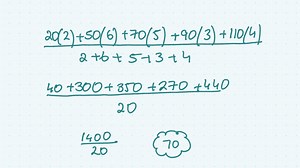 20(2)+50(6)+70(5)+90(3)+110(4)
2+6+5+3+4
40+300+350+270+440
20
1400
20
70